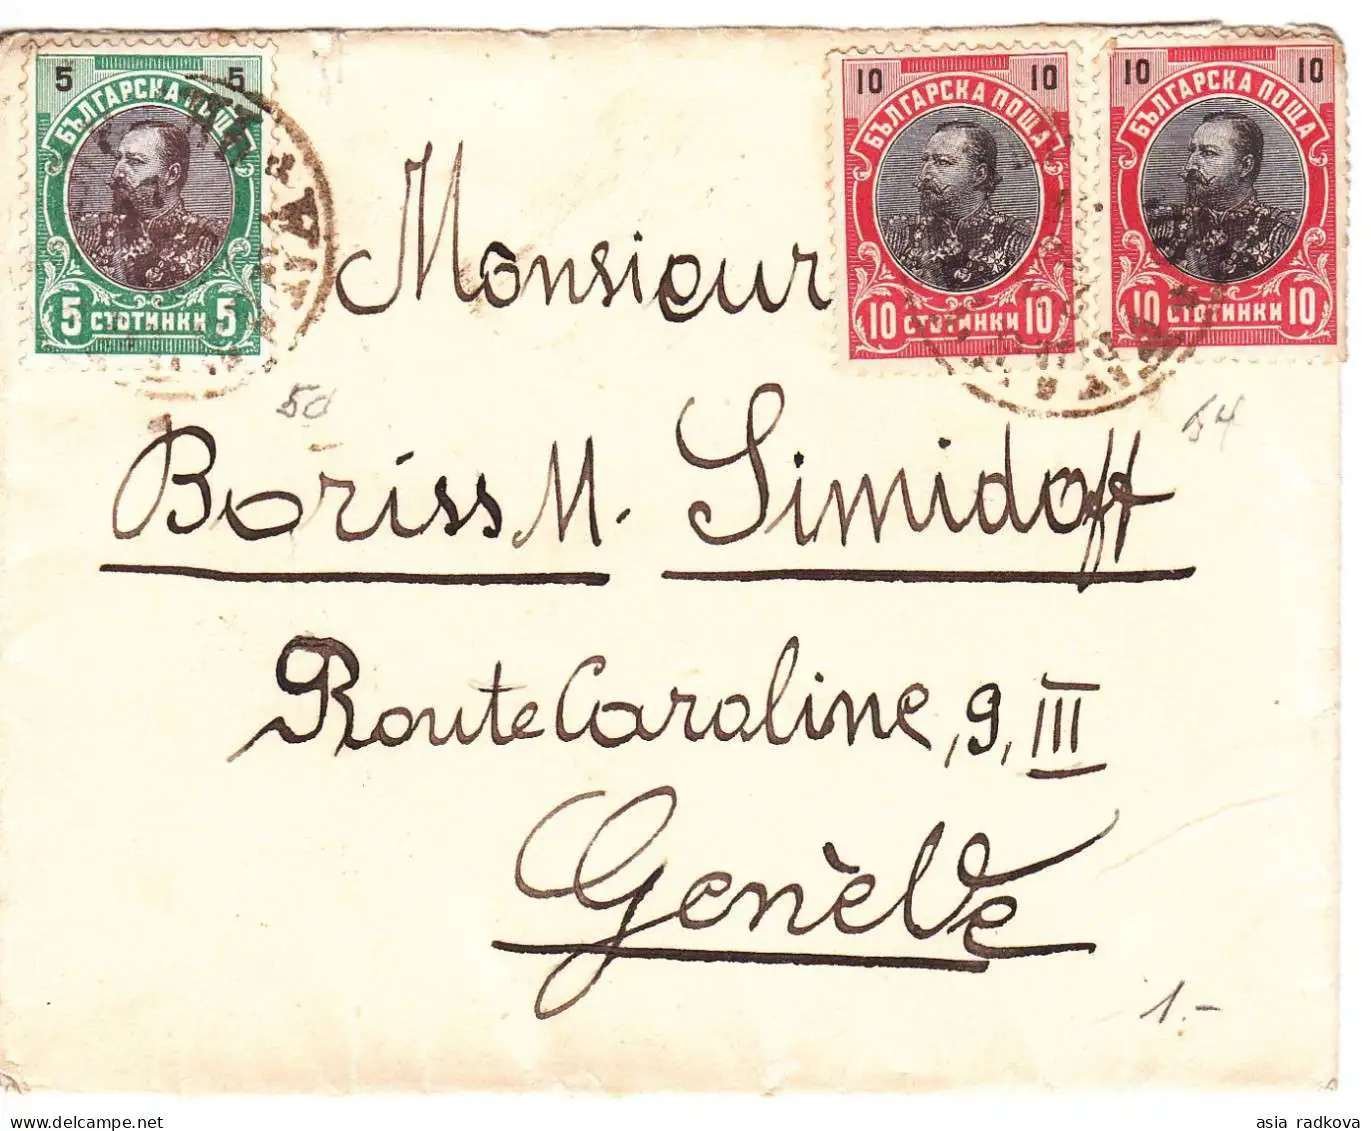 5 5
БЪЛГАРСКА ПОЩА
5 СТОТИНКИ 5
10 10
БЪЛГАРСКА ПОЩА
10 СТОТИНКИ 10
10 10
БЪЛГАРСКА ПОЩА
10 СТОТИНКИ 10
Monsieur
50
54
Boriss M. Simidoff
Route Caroline, 9, III
Genève
1.-
asia radkova